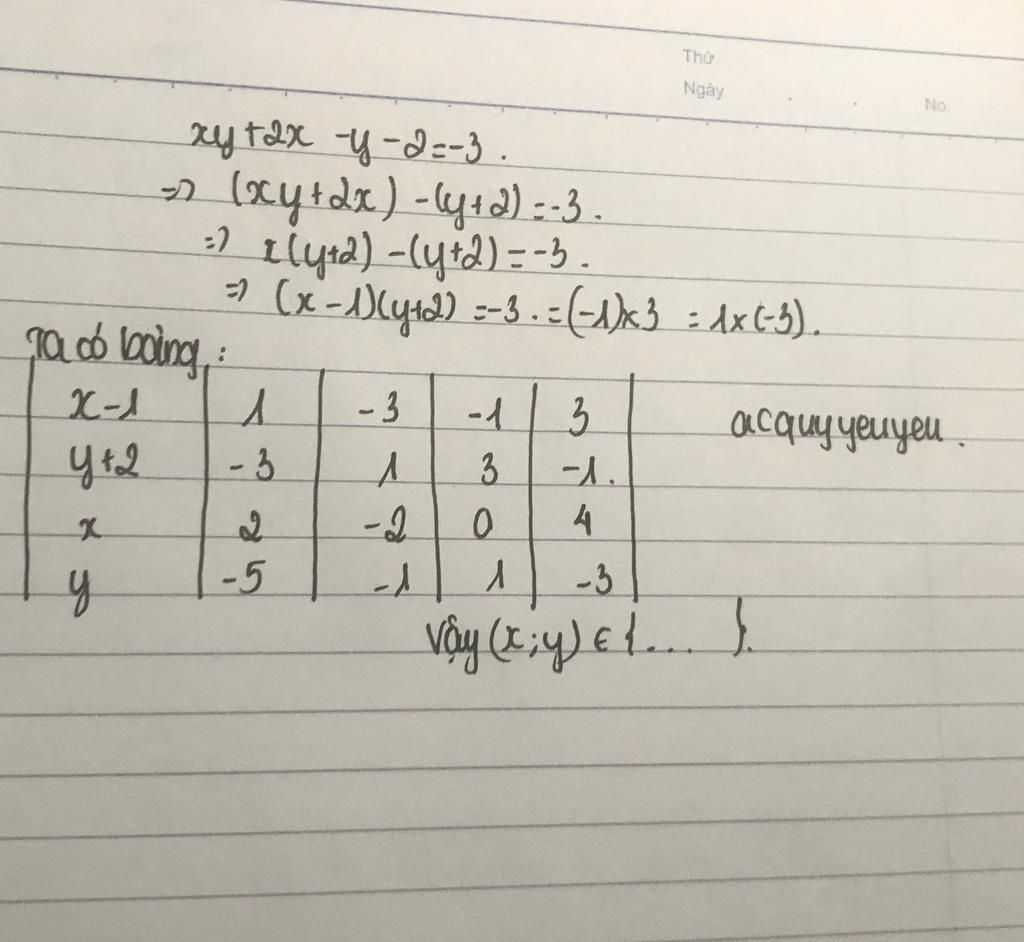 Thứ
Ngày
No
xy+2x -y -2=-3.
=> (xy+2x) -(y+2)=-3.
=> x(y+2) -(y+2)=-3.
=> (x-1)(y+2) =-3.=(-1)x3 =1x(-3).
Ta có bảng:
x-1 1 -3 -1 3
acquyyeuyeu.
y+2 -3 1 3 -1.
x 2 -2 0 4
y -5 -1 1 -3
Vậy (x;y) ∈ {... }.